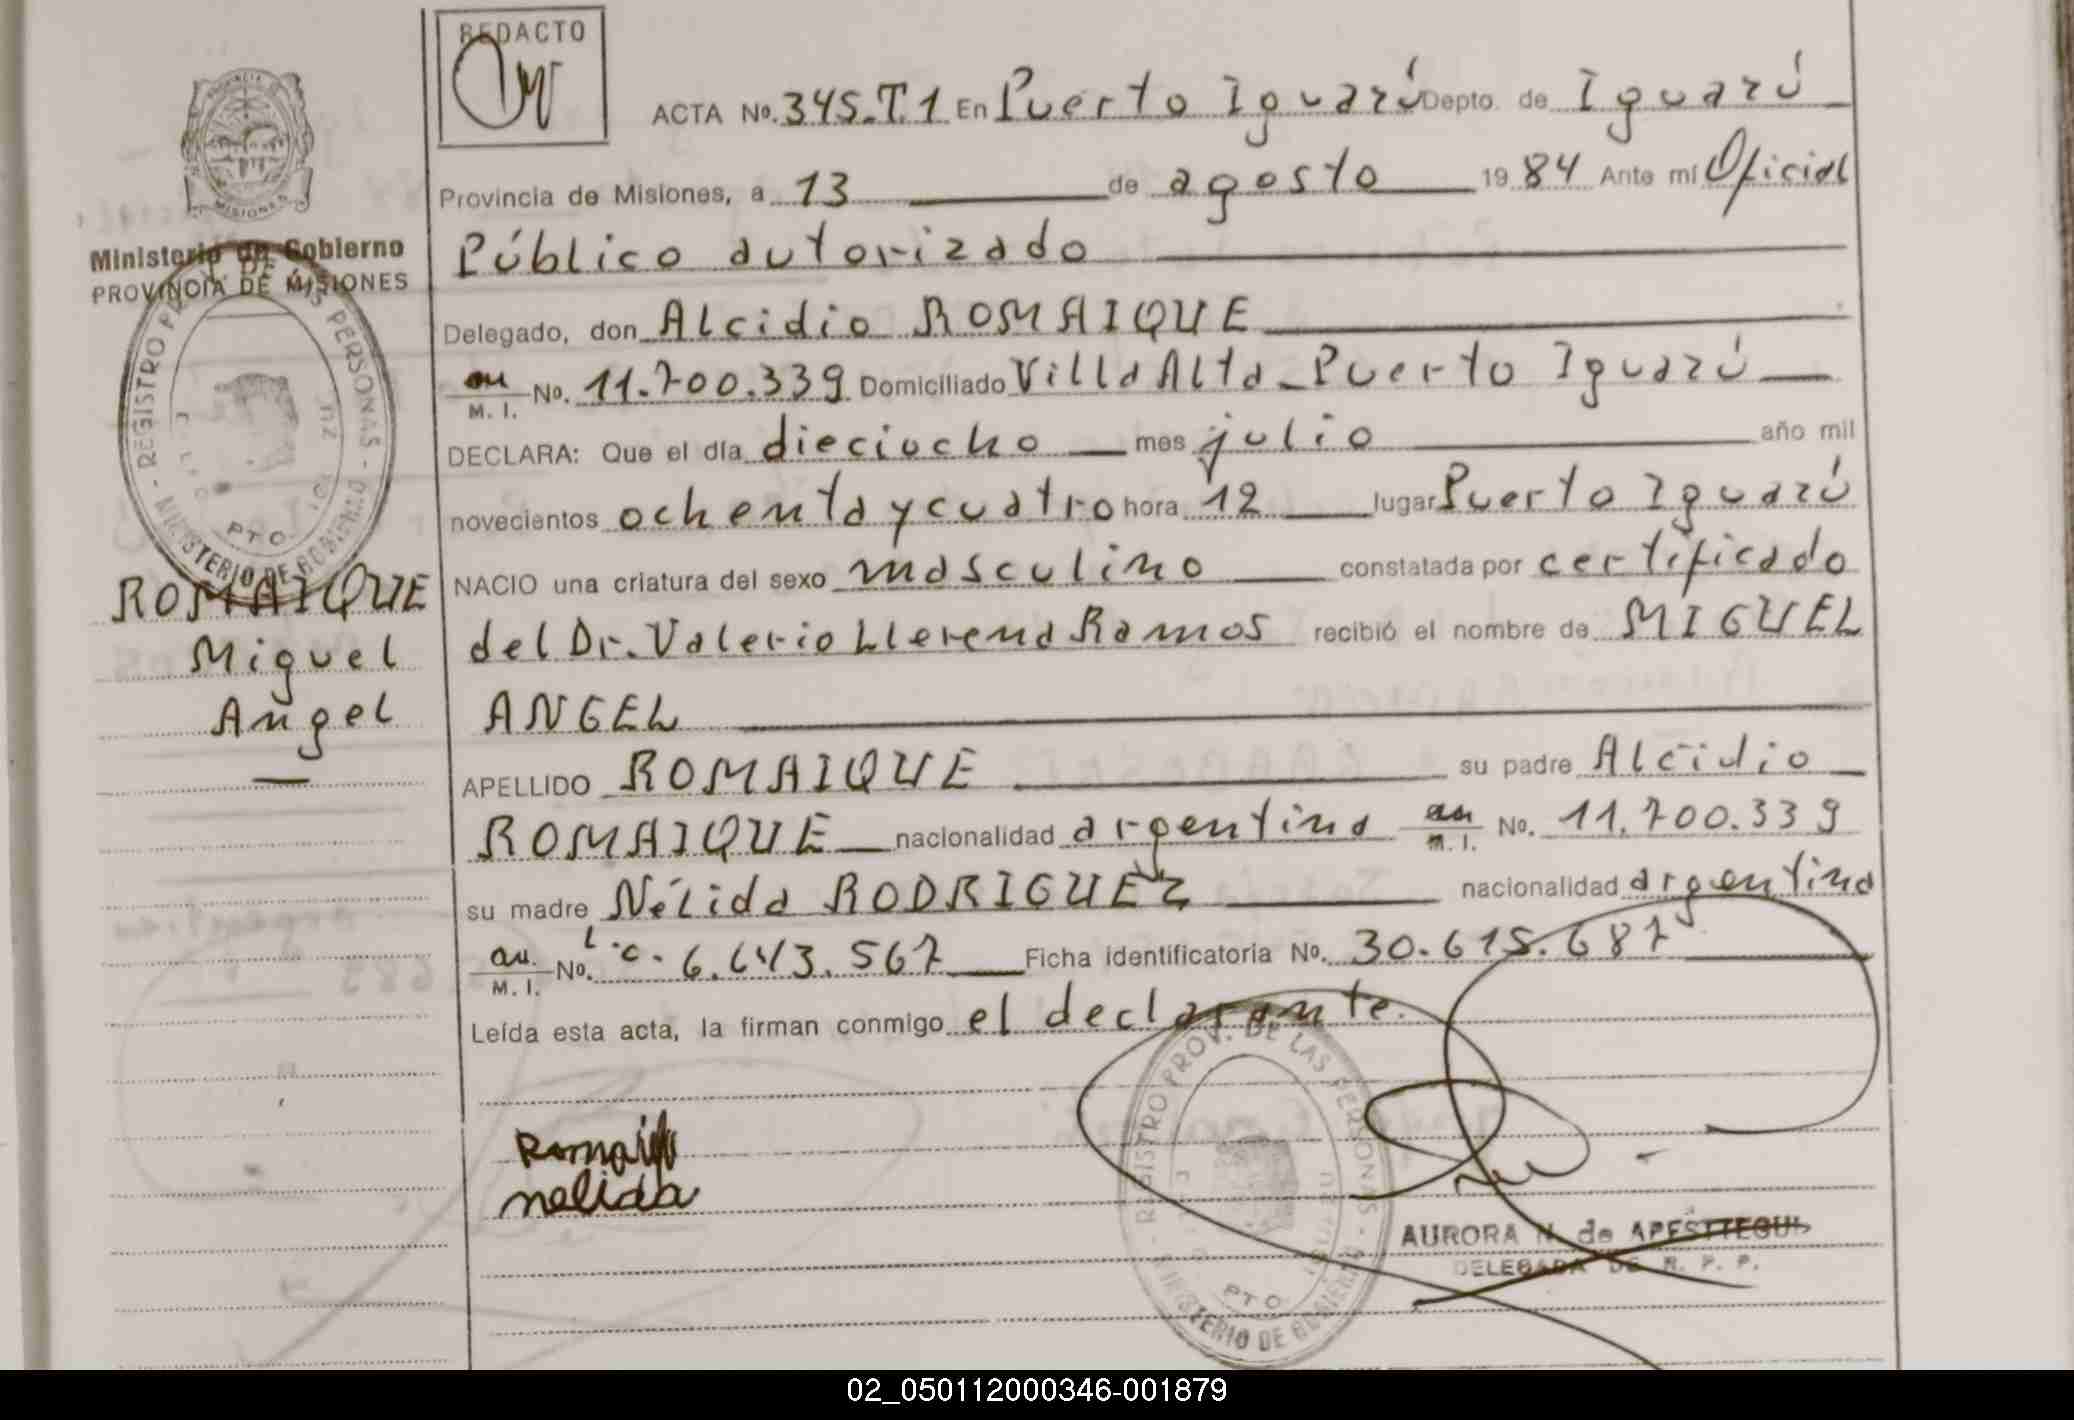 REDACTO
ACTA No. 345.T.1 En Puerto Iguazú Depto. de Iguazú
Provincia de Misiones, a 13 de agosto 1984 Ante mí Oficial
Público autorizado
Delegado, don Alcidio ROMAIQUE
M. I. No. 11.700.339 Domiciliado Villa Alta - Puerto Iguazú
DECLARA: Que el día dieciocho mes julio año mil
novecientos ochenta y cuatro hora 12 lugar Puerto Iguazú
NACIO una criatura del sexo masculino constatada por certificado
del Dr. Valerio Llerena Ramos recibió el nombre de MIGUEL
ANGEL
APELLIDO ROMAIQUE su padre Alcidio
ROMAIQUE nacionalidad argentina M. I. No. 11.700.339
su madre Nélida RODRIGUEZ nacionalidad argentina
M. I. No. L.C. 6.643.567 Ficha identificatoria No. 30.615.687
Leída esta acta, la firman conmigo el declarante.
nelida
AURORA N. de APESTTEGUI
DELEGADA DE R. P. P.
PROVINCIA DE MISIONES
Ministerio de Gobierno
PROVINCIA DE MISIONES
REGISTRO PROV. DE LAS PERSONAS - MINISTERIO DE GOBIERNO
PTO.
ROMAIQUE
Miguel
Angel
REGISTRO PROV. DE LAS PERSONAS - MINISTERIO DE GOBIERNO
PTO.
02_050112000346-001879